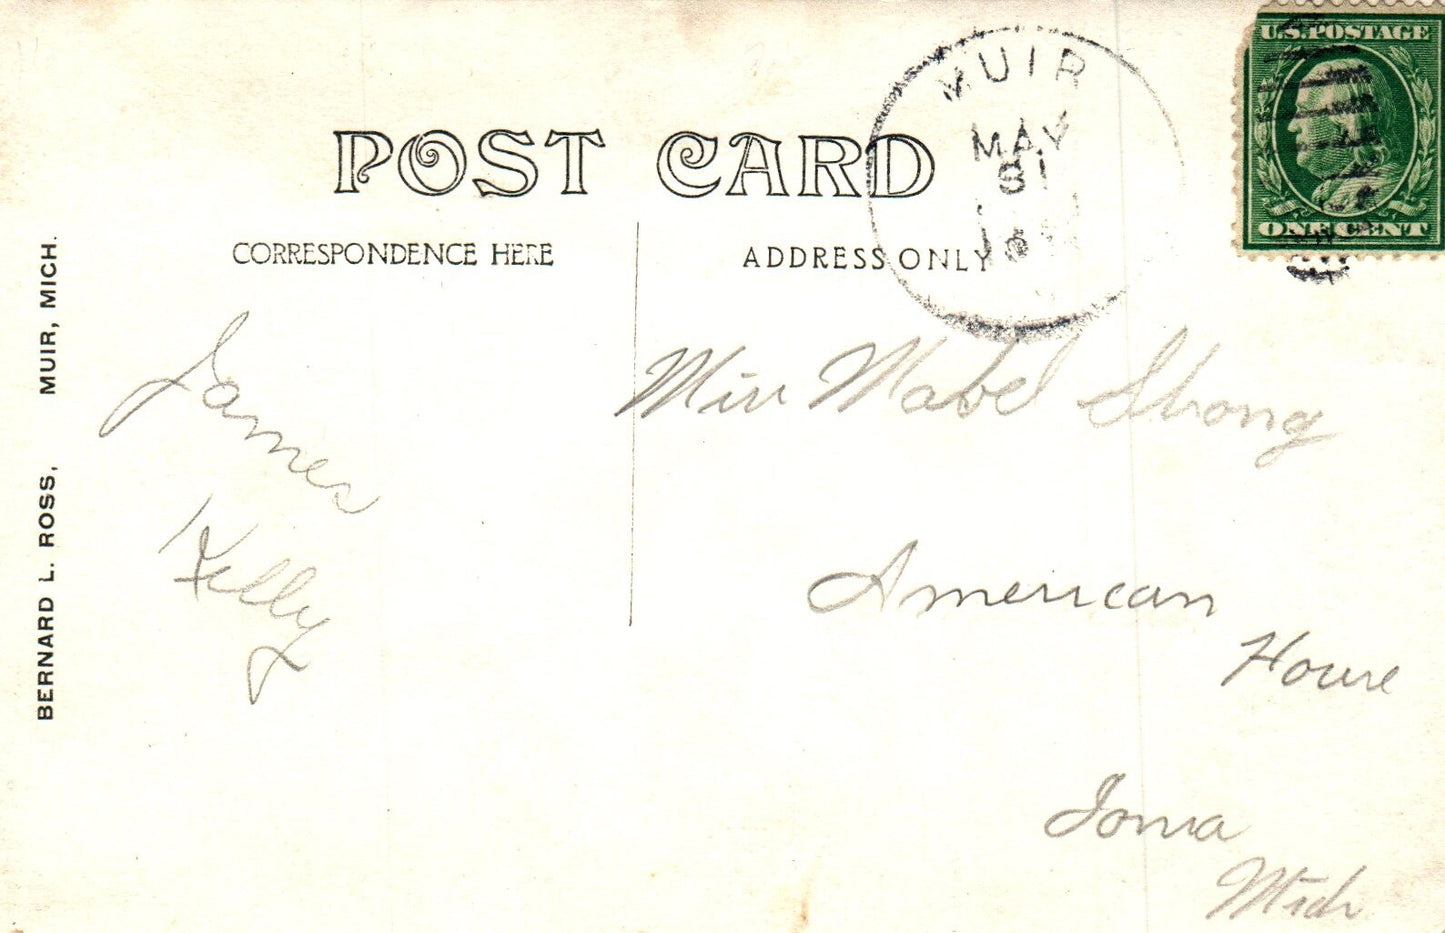 POST CARD
CORRESPONDENCE HERE
ADDRESS ONLY
MUIR
MAY
31
U.S. POSTAGE
ONE CENT
BERNARD L. ROSS, MUIR, MICH.
James
Kelly
Miss Mabel Strong
American
House
Ionia
Mich